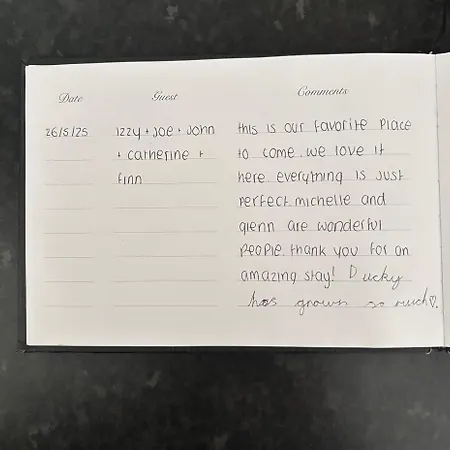 Date Guest Comments
26/5/25 Izzy + Joe + John this is our favorite place
+ catherine + to come. we love it
finn here. everything is just
perfect. michelle and
glenn are wonderful
people. thank you for an
amazing stay! Ducky
has grown so much♡.